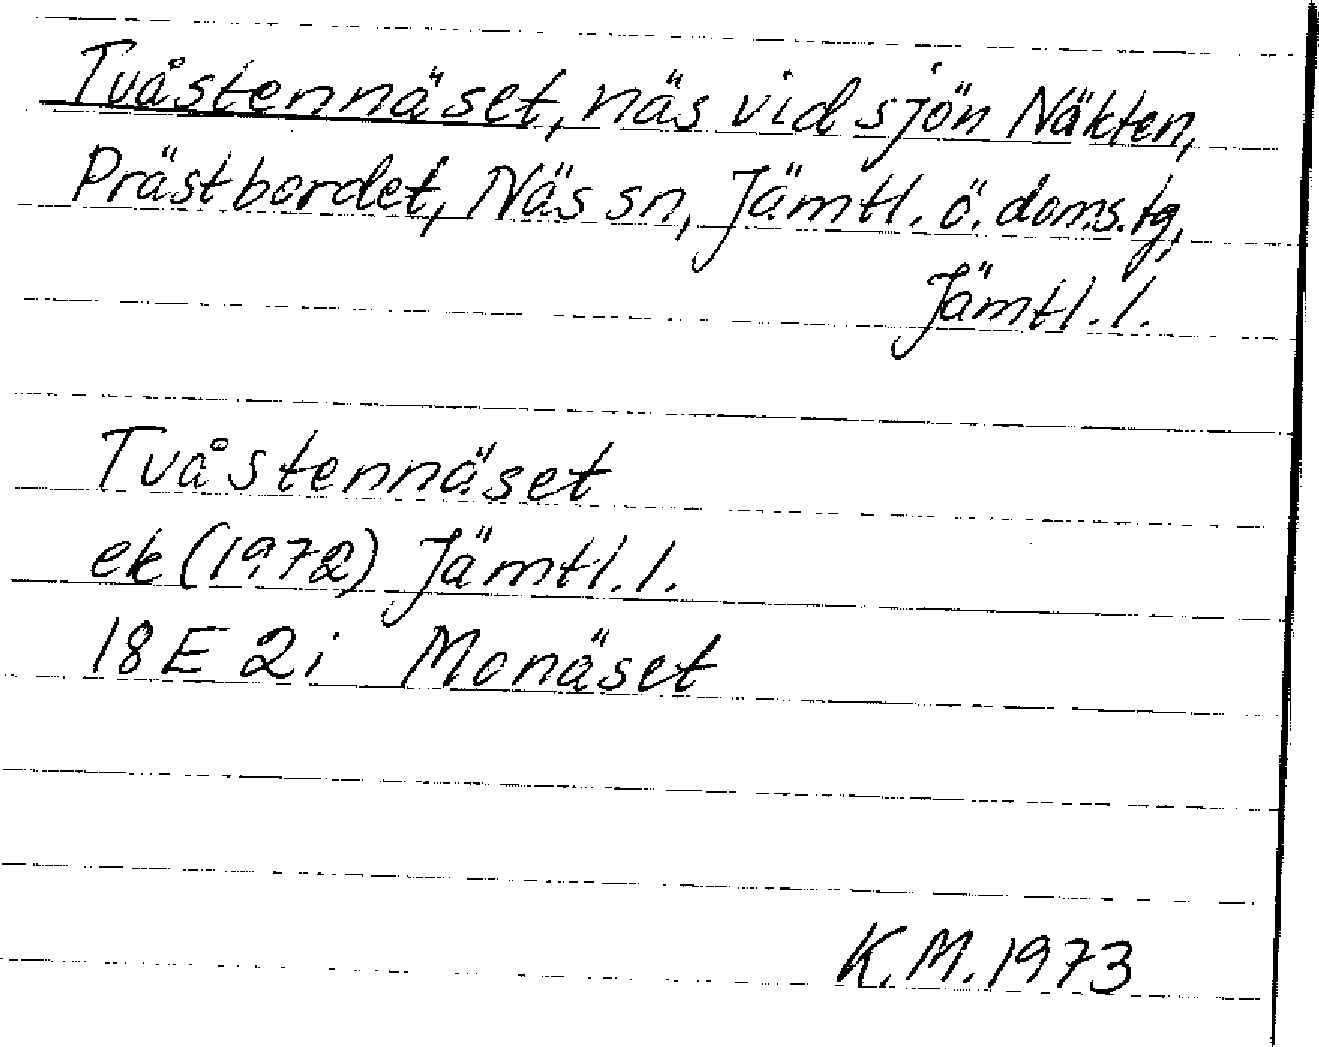 Tvåstennäset, näs vid sjön Näkten,
Prästbordet, Näs sn, Jämtl. ö. doms.tg,
Jämtl. l.
Tvåstennäset
ek (1972) Jämtl. l.
18 E 2 i Monäset
K. M. 1973